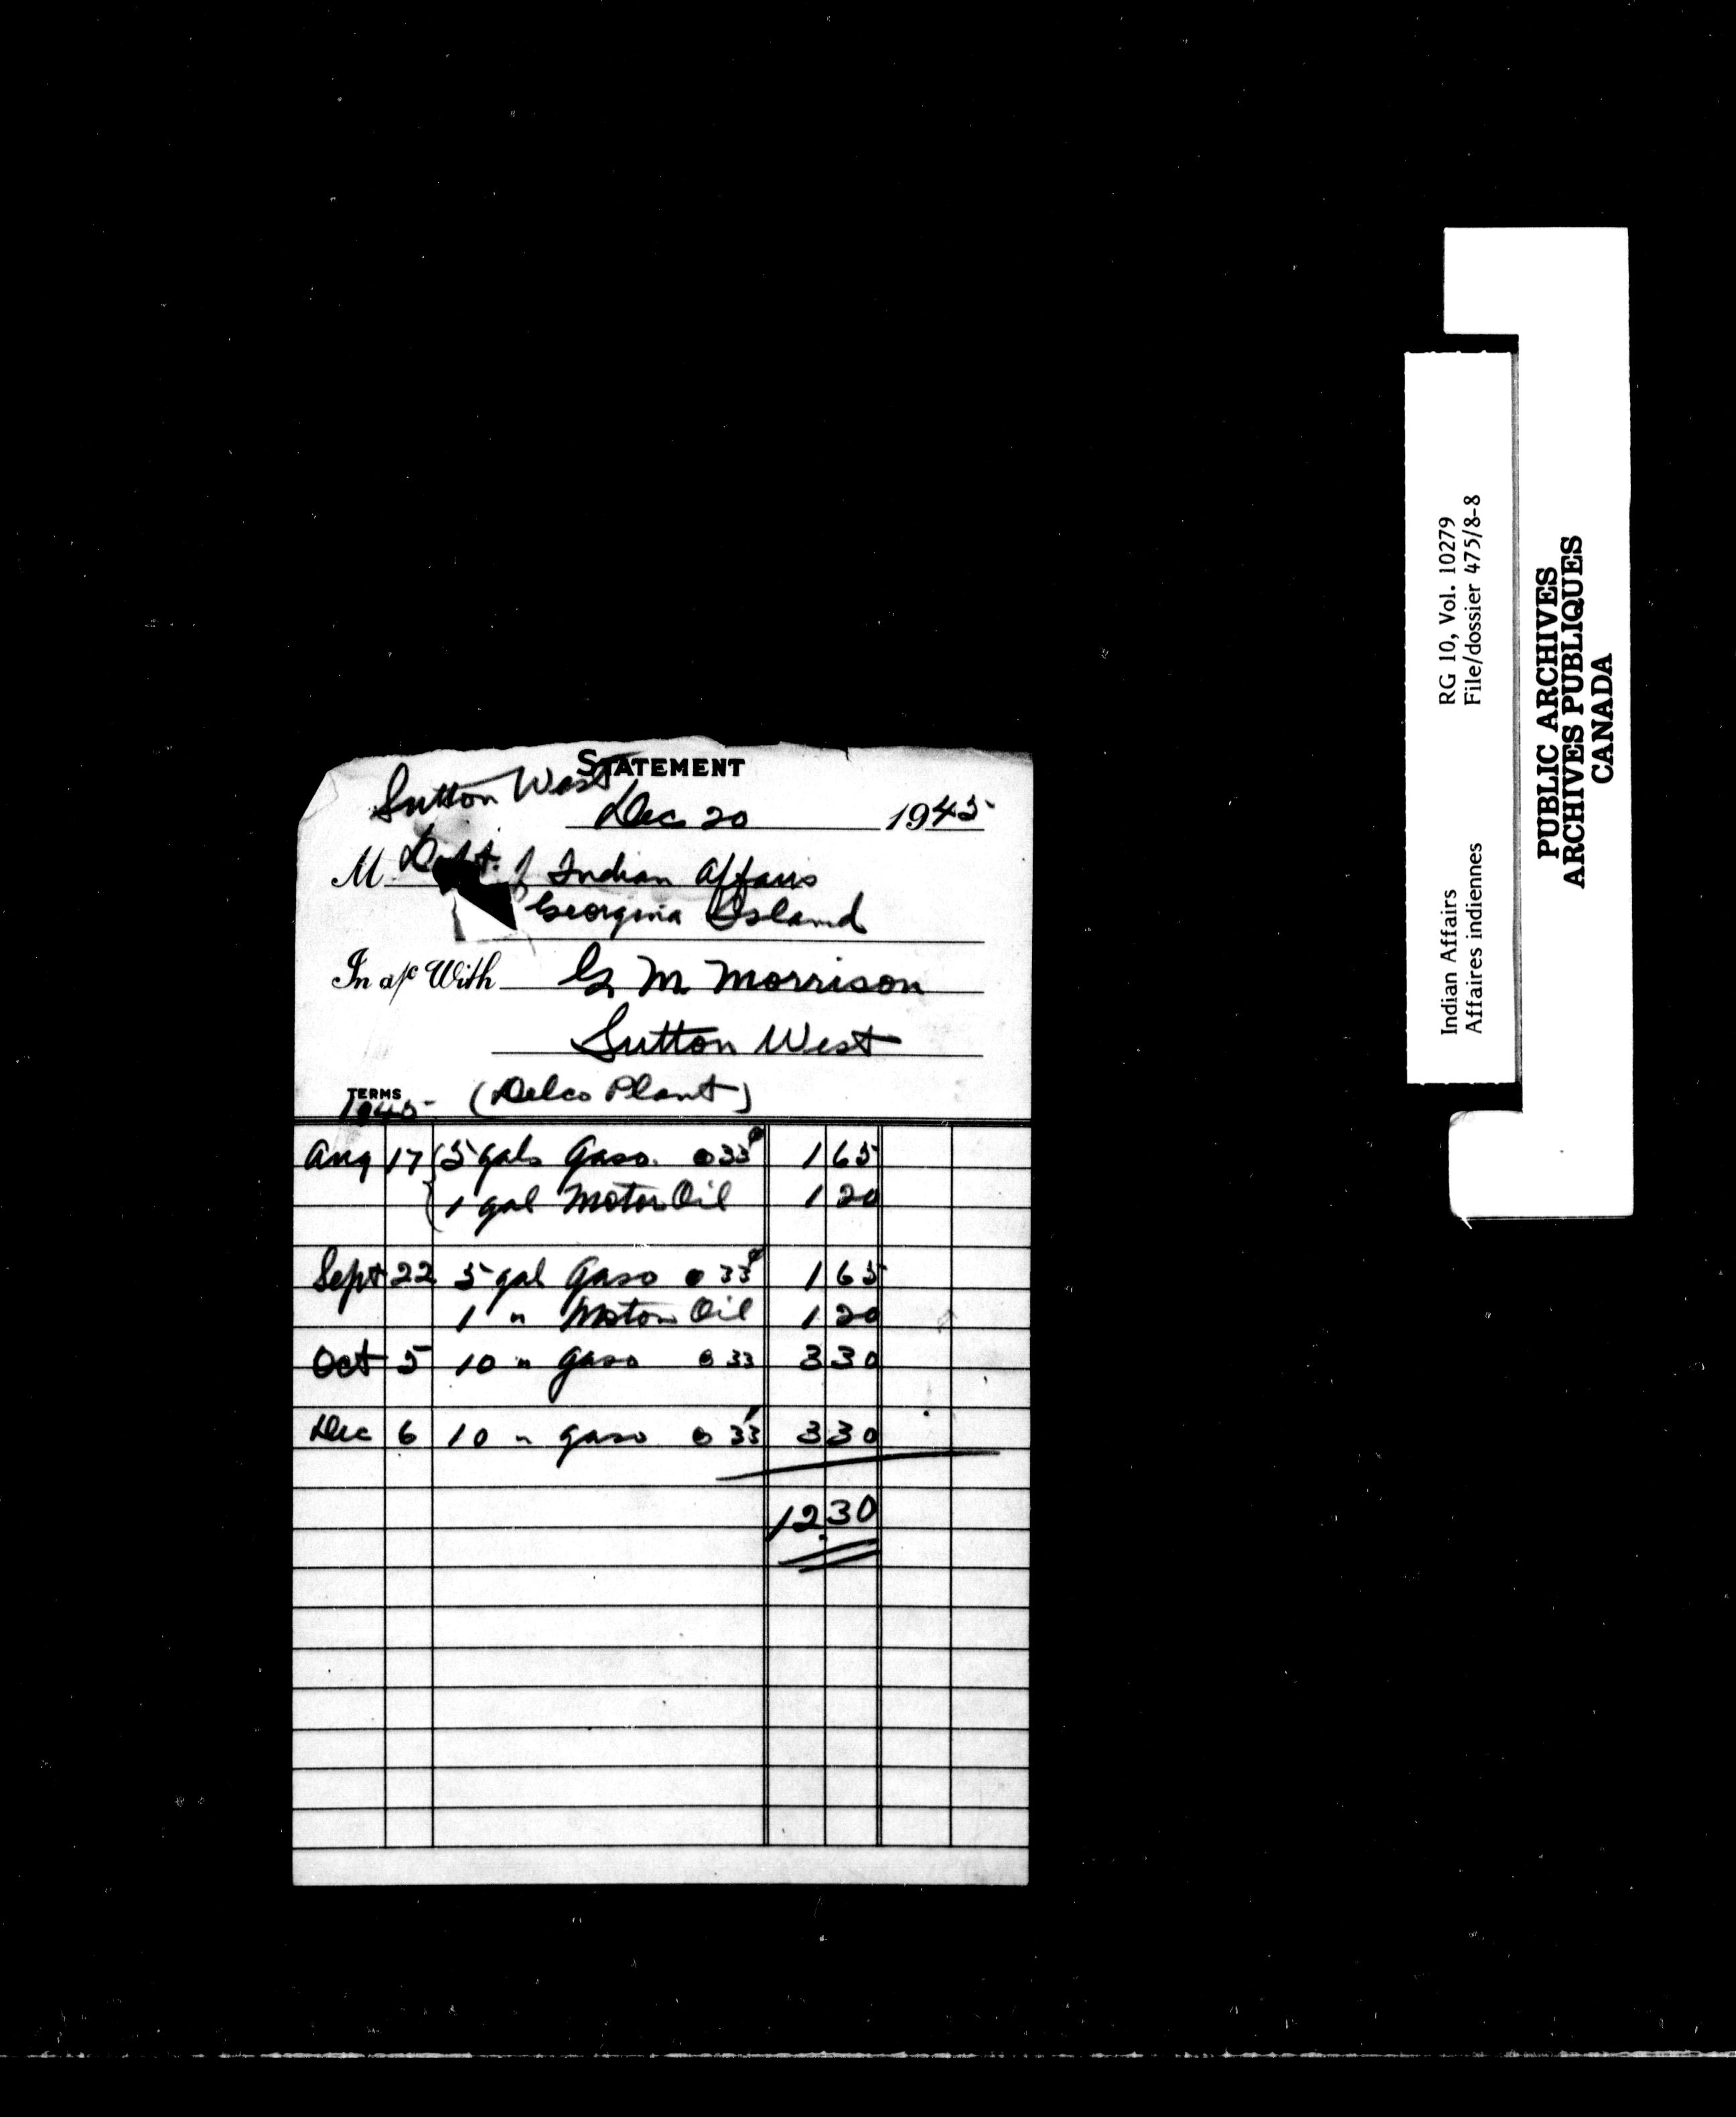 STATEMENT
Sutton West
Dec 20 1945
M Dept. of Indian Affairs
Georgina Island
In a/c With G M Morrison
Sutton West
TERMS
1945 (Delco Plant)
Aug 17 5 gals Gaso. @ 33¢ 1 65
1 gal Motor Oil 1 20
Sept 22 5 gal Gaso @ 33¢ 1 65
1 " Motor Oil 1 20
Oct 5 10 " gaso @ 33 3 30
Dec 6 10 " gaso @ 33 3 30
12.30
Indian Affairs RG 10, Vol. 10279
Affaires indiennes File/dossier 475/8-8
PUBLIC ARCHIVES
ARCHIVES PUBLIQUES
CANADA